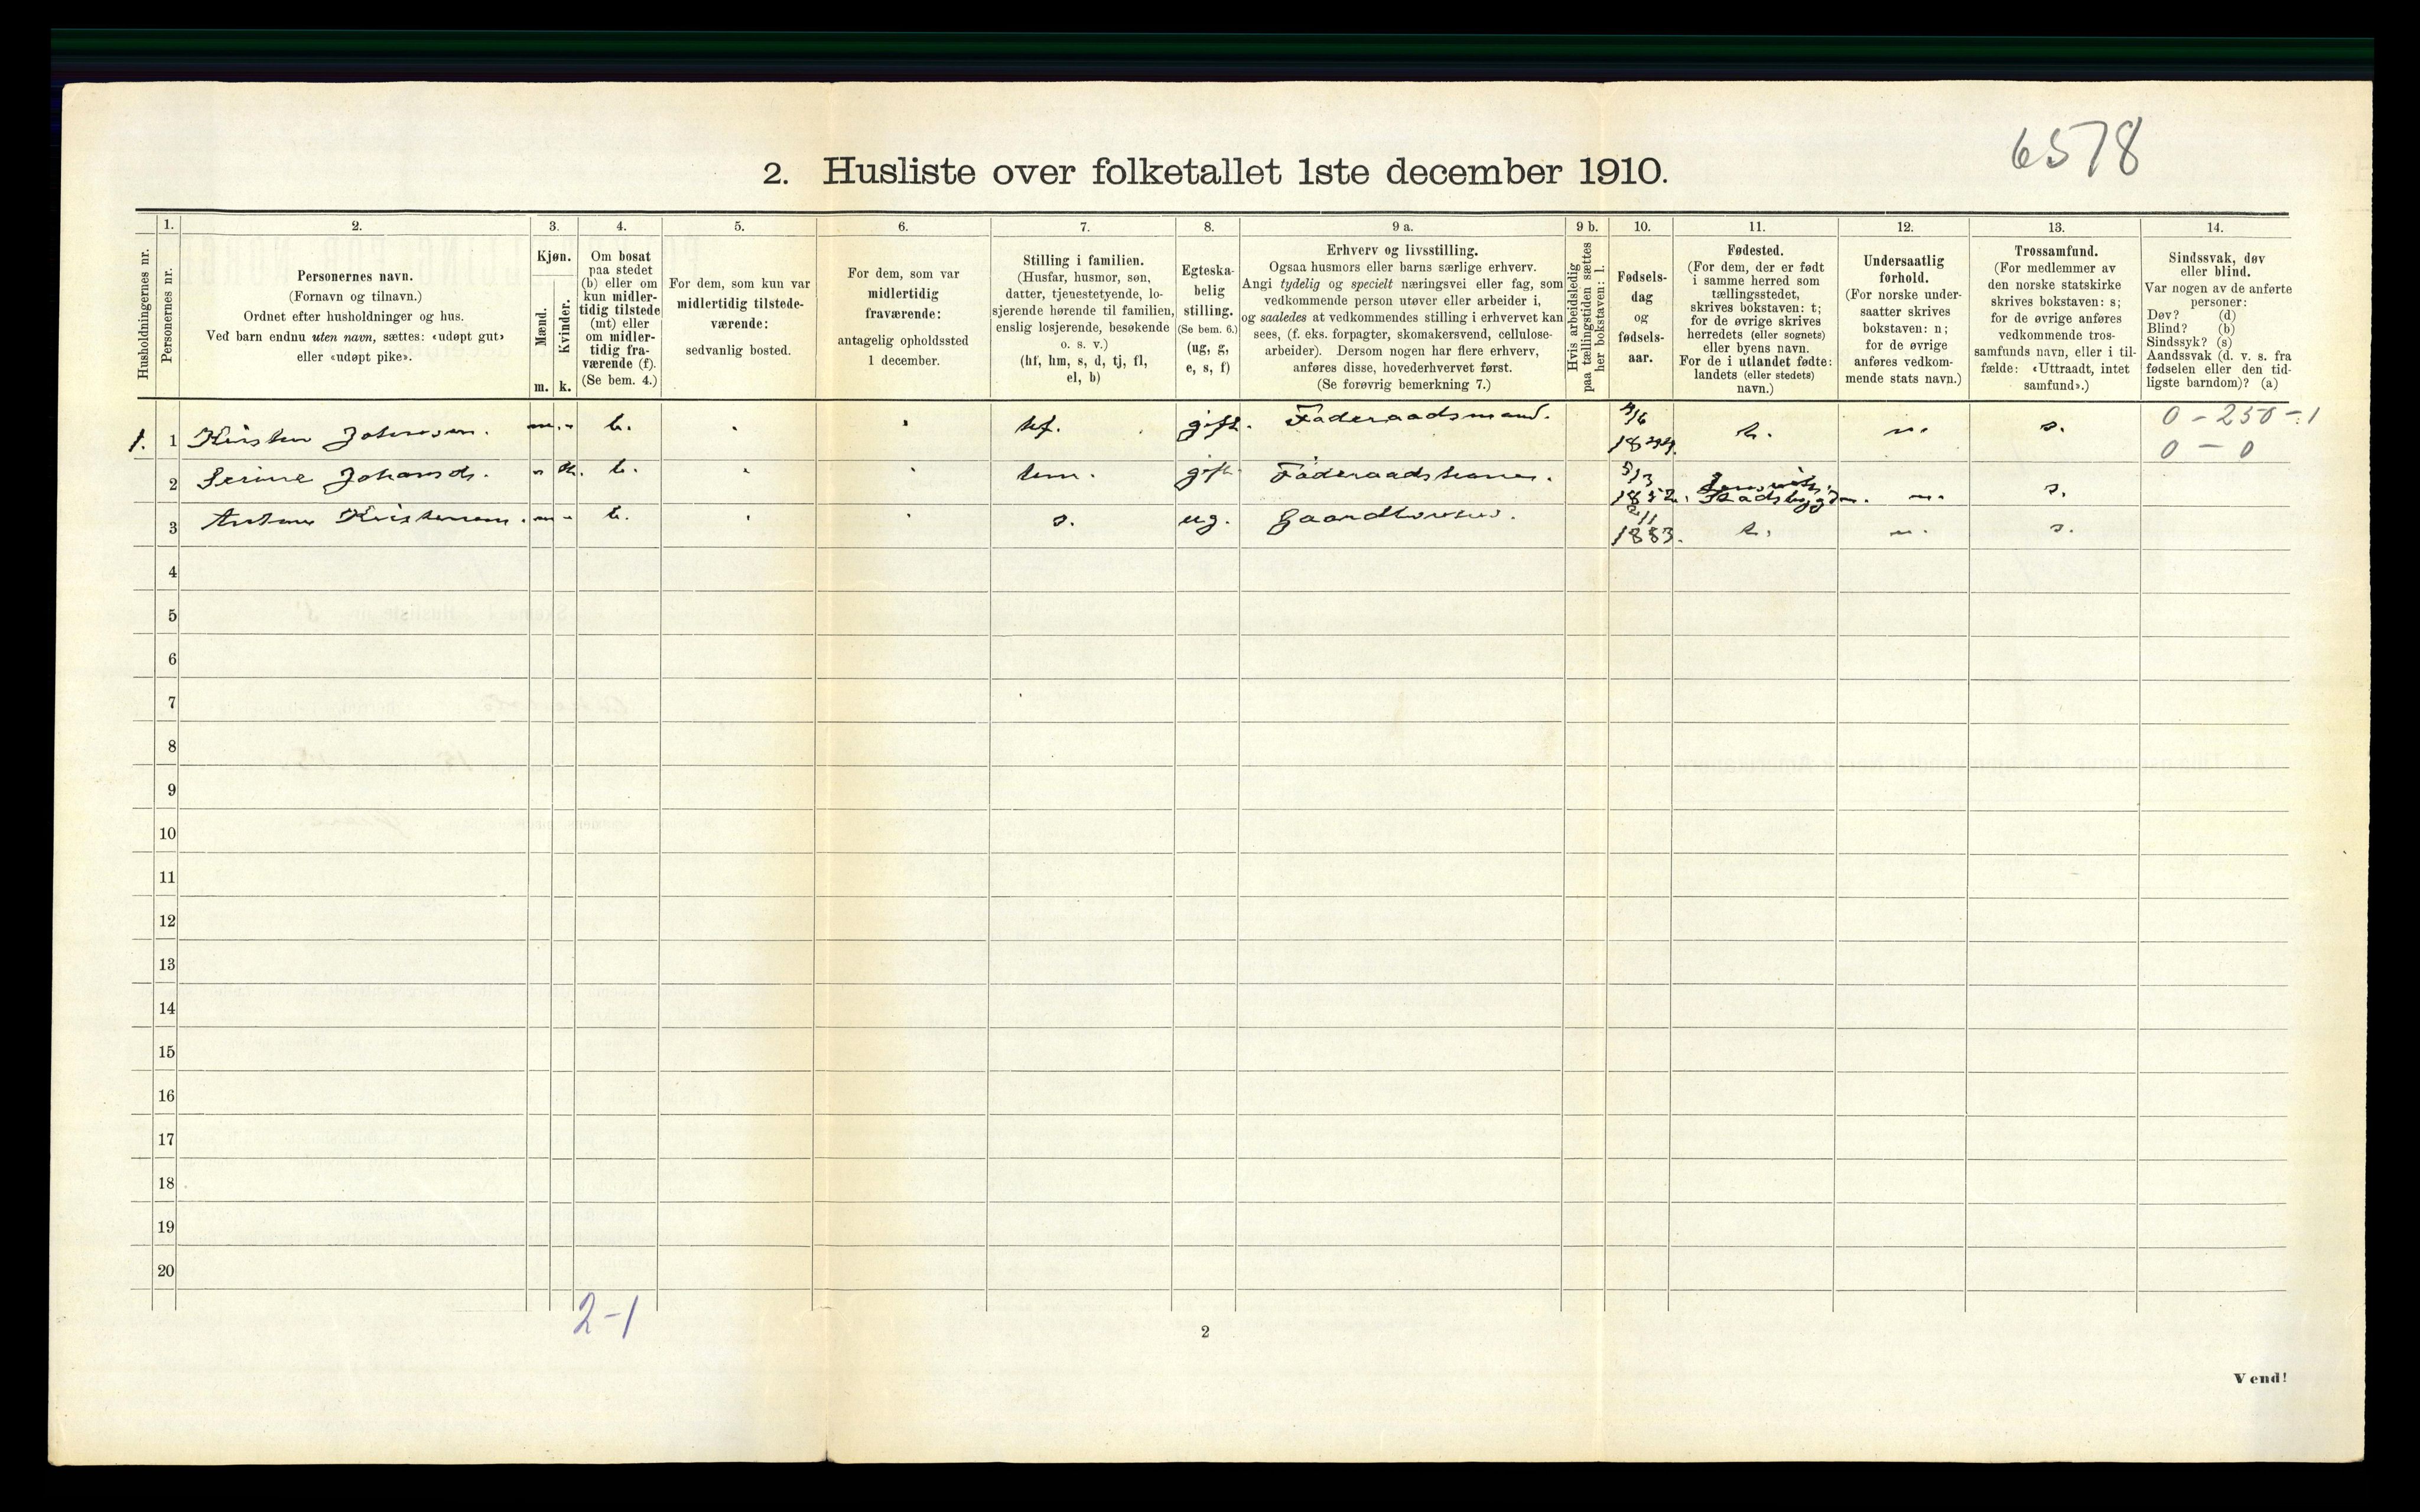 6578
2. Husliste over folketallet 1ste december 1910.
Husholdningernes nr.
1.
Personernes nr.
2.
Personernes navn.
(Fornavn og tilnavn.)
Ordnet efter husholdninger og hus.
Ved barn endnu uten navn, sættes: «udøpt gut»
eller «udøpt pike».
3.
Kjøn.
Mænd.
Kvinder.
m. k.
4.
Om bosat
paa stedet
(b) eller om
kun midler-
tidig tilstede
(mt) eller
om midler-
tidig fra-
værende (f).
(Se bem. 4.)
5.
For dem, som kun var
midlertidig tilstede-
værende:
sedvanlig bosted.
6.
For dem, som var
midlertidig
fraværende:
antagelig opholdssted
1 december.
7.
Stilling i familien.
(Husfar, husmor, søn,
datter, tjenestetyende, lo-
sjerende hørende til familien,
enslig losjerende, besøkende
o. s. v.)
(hf, hm, s, d, tj, fl,
el, b)
8.
Egteska-
belig
stilling.
(Se bem. 6.)
(ug, g,
e, s, f)
9 a.
Erhverv og livsstilling.
Ogsaa husmors eller barns særlige erhverv.
Angi tydelig og specielt næringsvei eller fag, som
vedkommende person utøver eller arbeider i,
og saaledes at vedkommendes stilling i erhvervet kan
sees, (f. eks. forpagter, skomakersvend, cellulose-
arbeider). Dersom nogen har flere erhverv,
anføres disse, hovederhvervet først.
(Se forøvrig bemerkning 7.)
9 b.
Hvis arbeidsledig
paa tællingstiden sættes
her bokstaven: l.
10.
Fødsels-
dag
og
fødsels-
aar.
11.
Fødested.
(For dem, der er født
i samme herred som
tællingsstedet,
skrives bokstaven: t;
for de øvrige skrives
herredets (eller sognets)
eller byens navn.
For de i utlandet fødte:
landets (eller stedets)
navn.)
12.
Undersaatlig
forhold.
(For norske under-
saatter skrives
bokstaven: n;
for de øvrige
anføres vedkom-
mende stats navn.)
13.
Trossamfund.
(For medlemmer av
den norske statskirke
skrives bokstaven: s;
for de øvrige anføres
vedkommende tros-
samfunds navn, eller i til-
fælde: «Uttraadt, intet
samfund».)
14.
Sindssvak, døv
eller blind.
Var nogen av de anførte
personer:
Døv? (d)
Blind? (b)
Sindssyk? (s)
Aandssvak (d. v. s. fra
fødselen eller den tid-
ligste barndom)? (a)
1. 1 Kristen Johansen. m. - b. hf. gift. Føderaadsmand. t. n. s. 0 - 250 - 1
0 - 0
2 Serine Johansd. - k. b. hm. gift Føderaadskone. 5/3 1852. Stadsbygden. n. s.
3 Kristensen. m - b. s. ug. 2/11 1883. t. n. s.
4
5
6
7
8
9
10
11
12
13
14
15
16
17
18
19
20
2-1
2
Vend!